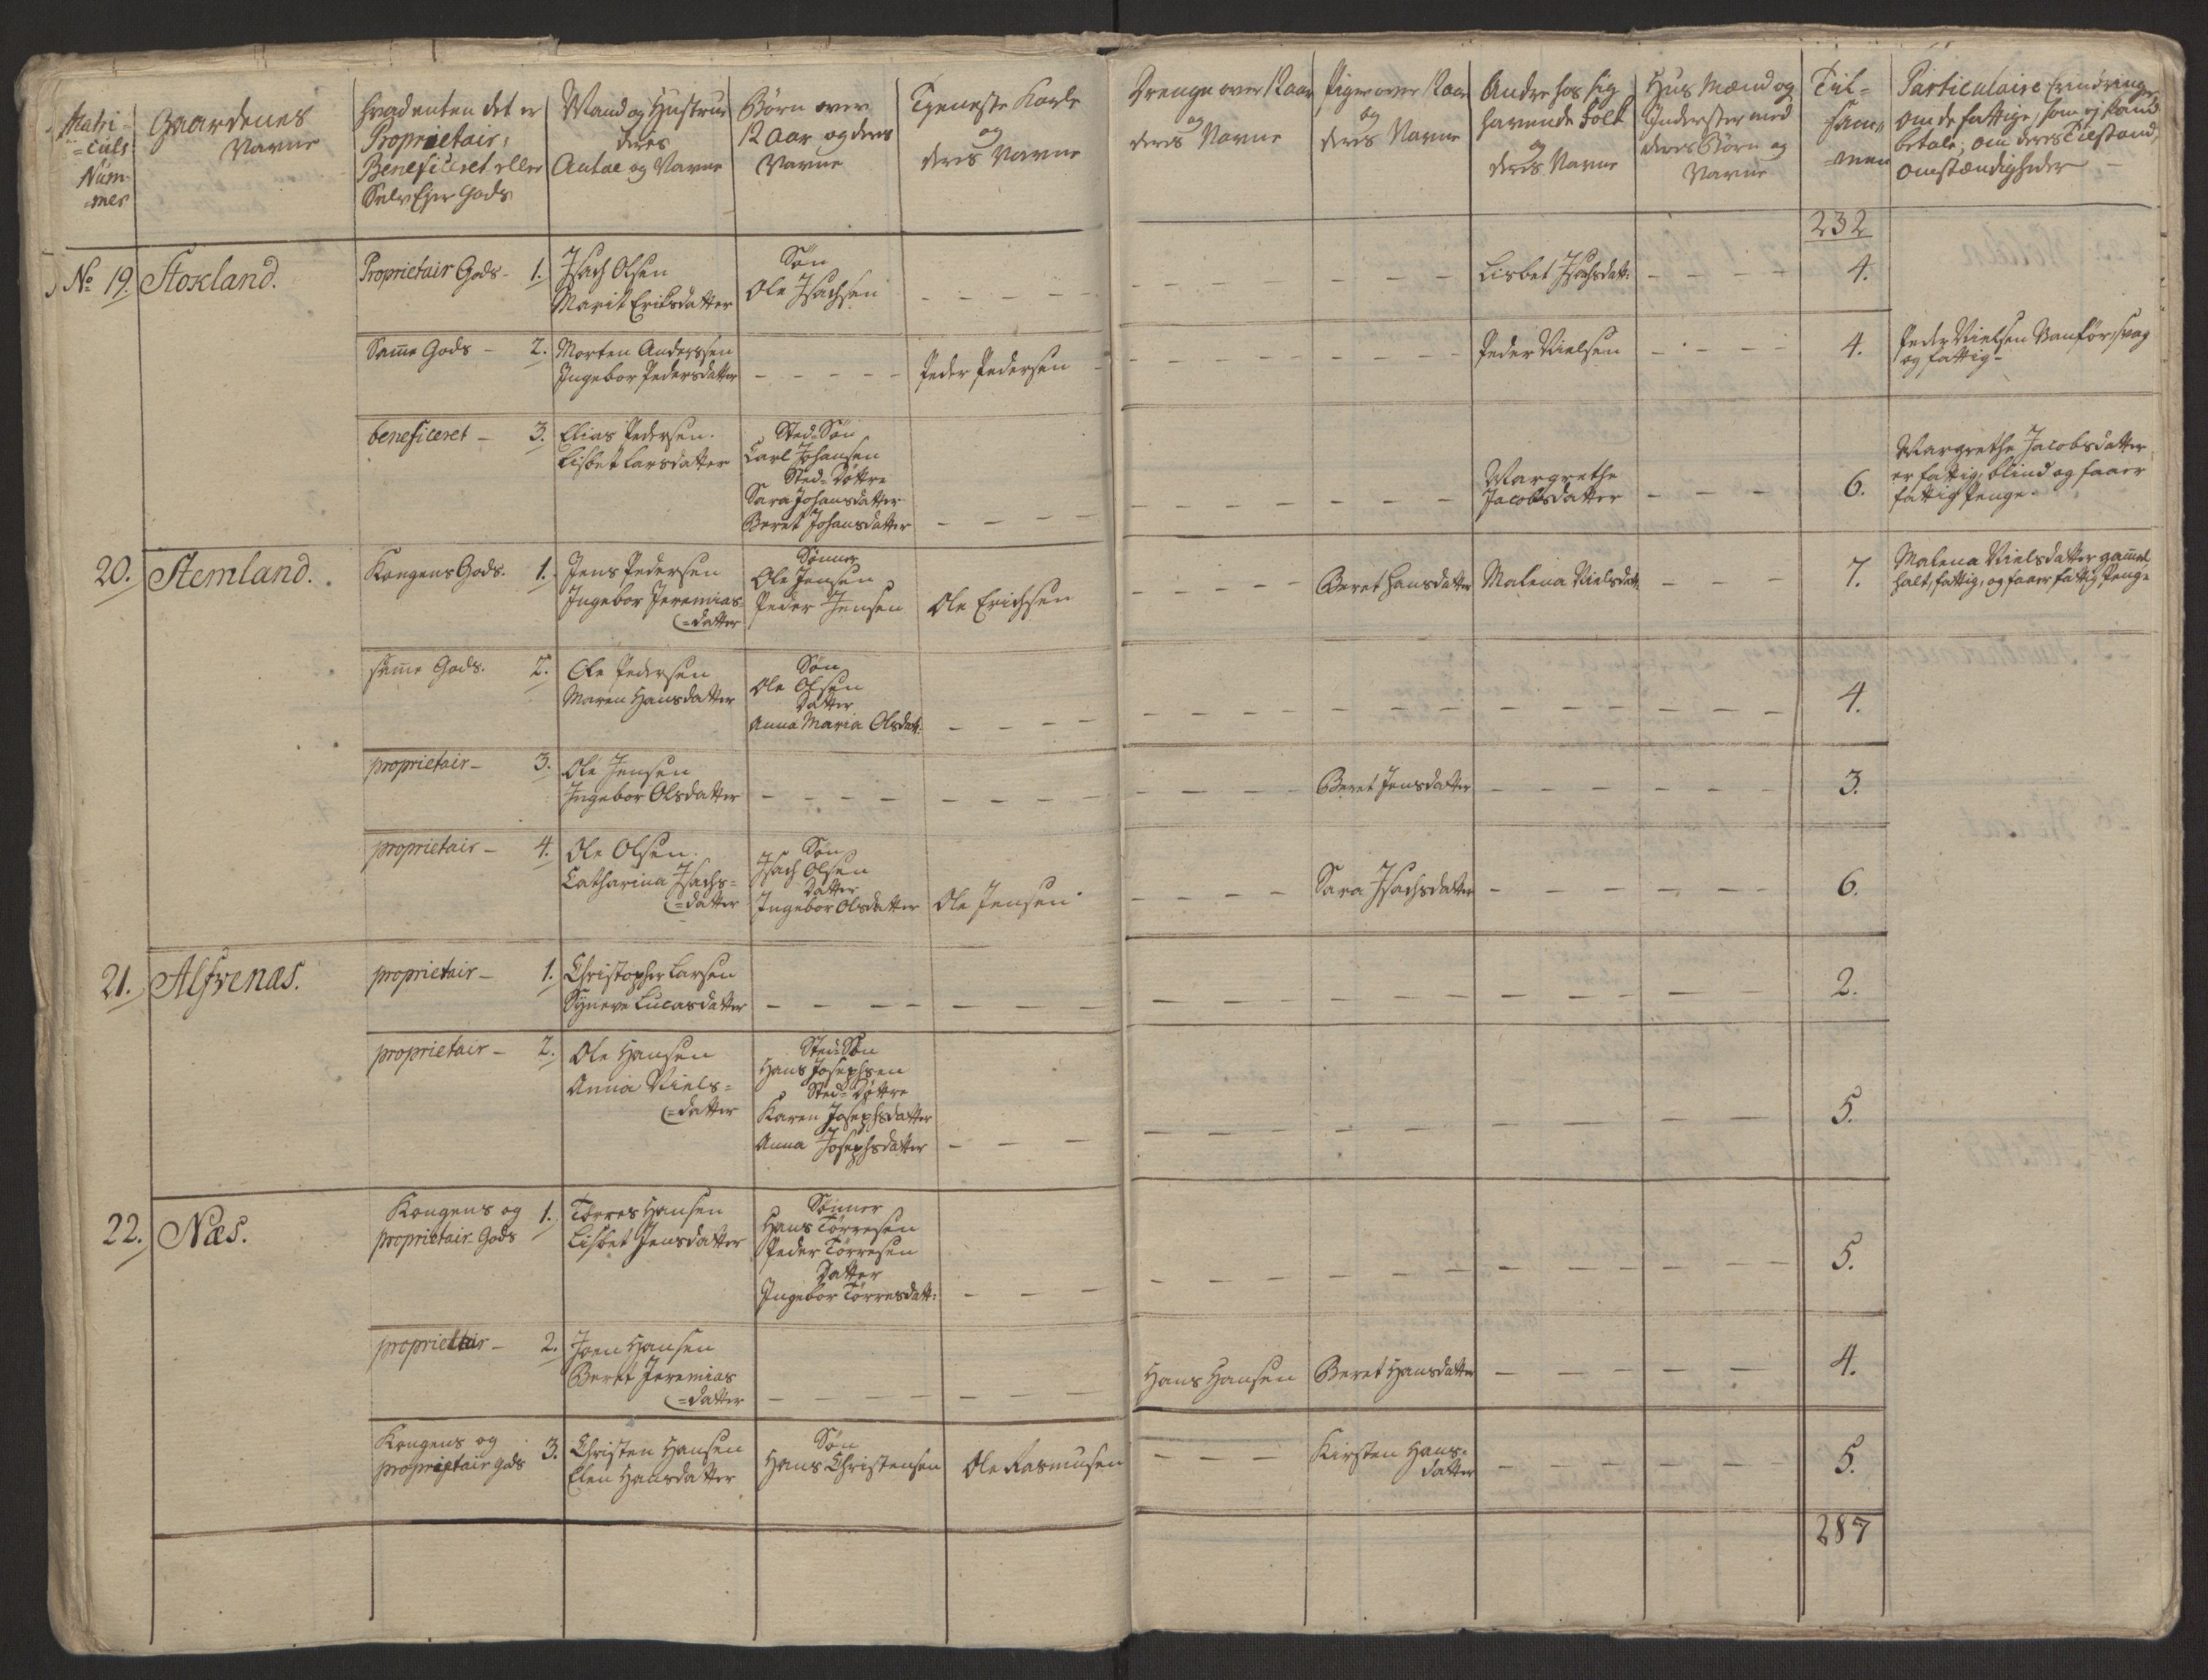 Matri-
=culs
Num-
=mer
Gaardenes
Navne
hvadenten det er
Proprietair,
Beneficeret eller
SelvEyer Gods
Mand og Hustrue
deres
Antal og Navne
Børn over
12 Aar og deres
Navne
Tjeneste Karle
og
deres Navne
Drenge over 12 Aar
og
deres Navne
Piger over 12 Aar
og
deres Navne
Andre hos sig
havende Folk
og
deres Navne
Huus Mænd og
Inderster med
deres Børn og
Navne
Til=
sam=
=men
Particulaire Erindringer
om de fattige, som ej kand
betale, om deres Tilstand,
Omstændigheder
232
No 19. Stokland. Proprietair Gods - 1. Isach Olsen
Marit Eriksdatter
Søn
Ole Isachsen
Lisbet Isachsdatt: 4.
Samme Gods - 2. Morten Anderssen
Ingebor Pedersdatter
Peder Pedersen
Peder Nielsen 4. Peder Nielsen Vanfør, svag
og fattig-
beneficeret - 3. Elias Pedersen.
Lisbet Larsdatter
Sted=Søn
Carl Johansen
Sted=Døttre
Sara Johansdatter
Beret Johansdatter
Margrethe
Jacobsdatter 6.
Margrethe Jacobsdatter
er fattig, blind og faaer
fattig Penge.
20. Stemland. Kongens Gods. 1. Jens Pedersen
Ingebor Jeremias
=datter
Sønner
Ole Jensen
Peder Jensen
Ole Erichsen
Beret Hansdatter Malena Nielsdatt: 7.
Malena Nielsdatter gammel,
halt, fattig, og faaer fattig Penge
samme Gods. 2. Ole Pedersen
Maren Hansdatter
Søn
Ole Olsen
Datter
Anna Maria Olsdatt: 4.
proprietair - 3. Ole Jensen
Ingebor Olsdatter
Beret Jensdatter 3.
proprietair - 4. Ole Olsen.
Catharina Isachs=
=datter
Søn
Isach Olsen
Datter
Ingebor Olsdatter
Ole Jensen
Sara Isachsdatter 6.
21. Alfvenæs. proprietair - 1. Christopher Larsen
Syneve Lucasdatter 2.
proprietair - 2. Ole Hansen
Anna Niels=
=datter
Sted=Søn
Hans Josephsen
Sted=Døttre
Karen Josephsdatter
Anna Josephsdatter 5.
22. Næs. Kongens og
proprietair Gods 1. Törres Hansen
Lisbet Jensdatter
Sønner
Hans Törresen
Peder Törresen
Datter
Ingebor Törresdatt: 5.
proprietair - 2. Joen Hansen
Beret Jeremias
=datter
Hans Hansen Beret Hansdatter 4.
Kongens og
proprietair Gods 3. Christen Hansen
Elen Hansdatter
Søn
Hans Christensen
Ole Rasmusen
Kirsten Hans=
datter 5.
287